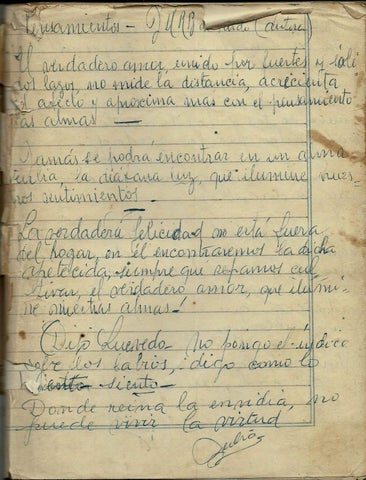 Pensamientos - (autora)
El verdadero amor unido por fuertes y sóli
dos lazos, no mide la distancia, acrecienta
el afecto y aproxima mas con el pensamiento
las almas
Jamás se podrá encontrar en un alma
la diafana luz, que ilumine nues
tros sentimientos
La verdadera felicidad no está fuera
del hogar, en él encontraremos la dicha
apetecida, siempre que sepamos cul
tivar, el verdadero amor, que ilumi
ne nuestras almas!
Dijo Quevedo - No pongo el indice
sobre los labios, digo como lo
siento siento -
Donde reina la envidia, no
puede vivir la virtud